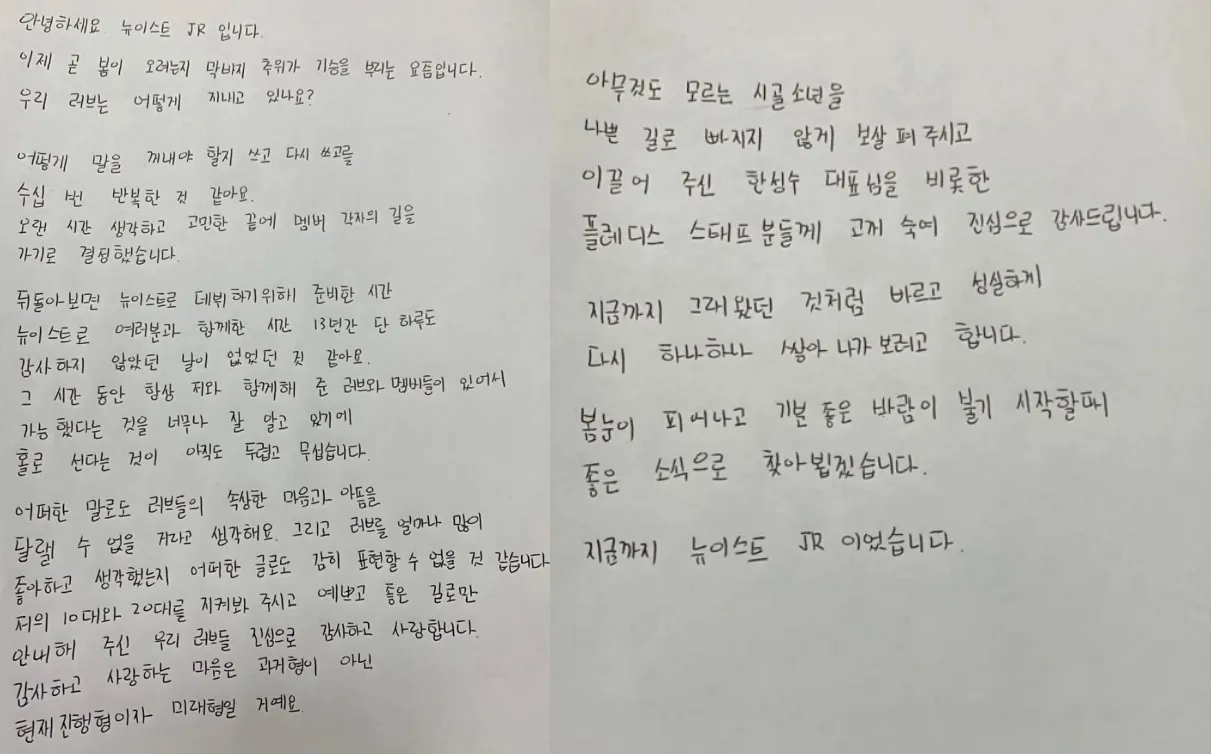 안녕하세요 뉴이스트 JR 입니다.
이제 곧 봄이 오려는지 막바지 추위가 기승을 부리는 요즘입니다.
우리 러브는 어떻게 지내고 있나요?
어떻게 말을 꺼내야 할지 쓰고 다시 쓰고를
수십 번 반복한 것 같아요.
오랜 시간 생각하고 고민한 끝에 멤버 각자의 길을
가기로 결정했습니다.
뒤돌아보면 뉴이스트로 데뷔하기위해 준비한 시간
뉴이스트로 여러분과 함께한 시간 13년간 단 하루도
감사하지 않았던 날이 없었던 것 같아요.
그 시간 동안 항상 저와 함께해 준 러브와 멤버들이 있어서
가능했다는 것을 너무나 잘 알고 있기에
홀로 선다는 것이 아직도 두렵고 무섭습니다.
어떠한 말로도 러브들의 속상한 마음과 아픔을
달랠 수 없을 거라고 생각해요. 그리고 러브를 얼마나 많이
좋아하고 생각했는지 어떠한 글로도 감히 표현할 수 없을 것 같습니다
저의 10대와 20대를 지켜봐 주시고 예쁘고 좋은 길로만
안내해 주신 우리 러브들 진심으로 감사하고 사랑합니다.
감사하고 사랑하는 마음은 과거형이 아닌
현재진행형이자 미래형일 거예요
아무것도 모르는 시골소년을
나쁜 길로 빠지지 않게 보살펴주시고
이끌어 주신 한성수 대표님을 비롯한
플레디스 스태프분들께 고개 숙여 진심으로 감사드립니다.
지금까지 그래왔던 것처럼 바르고 성실하게
다시 하나하나 쌓아 나가 보려고 합니다.
봄눈이 피어나고 기분 좋은 바람이 불기 시작할때
좋은 소식으로 찾아뵙겠습니다.
지금까지 뉴이스트 JR 이었습니다.